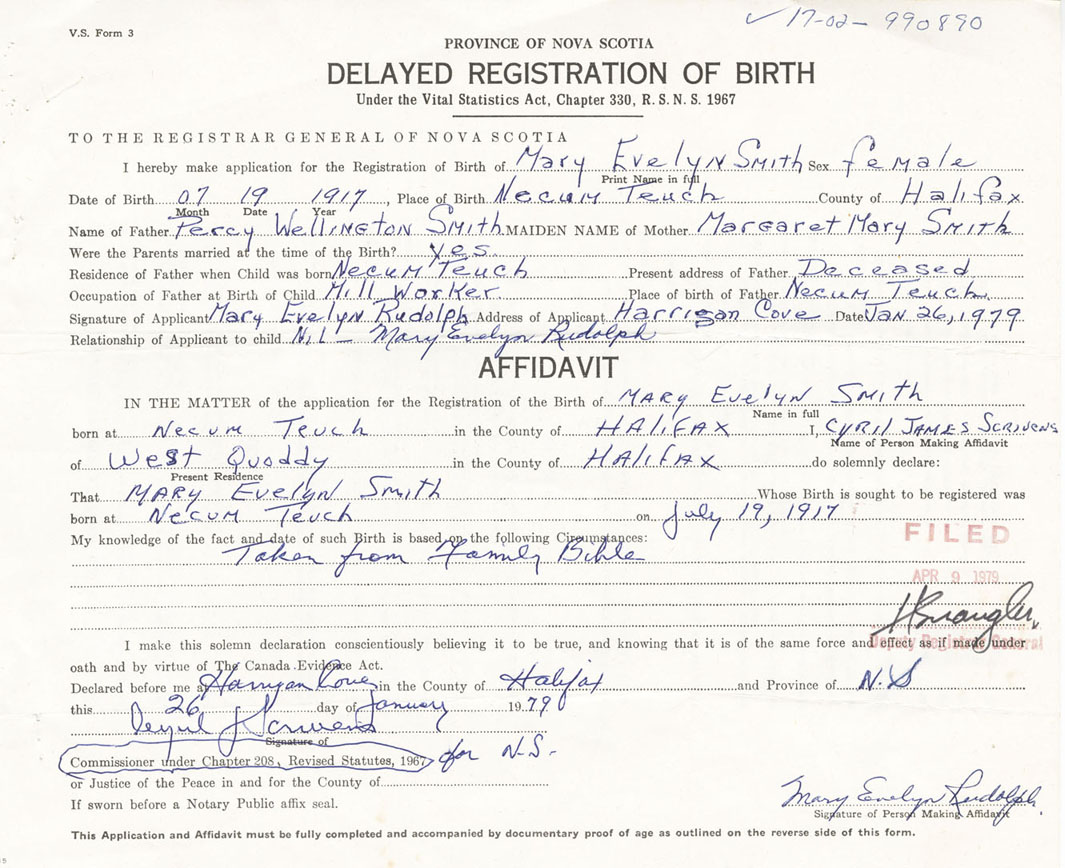 ✓ 17-02-990890
V.S. Form 3
PROVINCE OF NOVA SCOTIA
DELAYED REGISTRATION OF BIRTH
Under the Vital Statistics Act, Chapter 330, R.S.N.S. 1967
TO THE REGISTRAR GENERAL OF NOVA SCOTIA
I hereby make application for the Registration of Birth of Mary Evelyn Smith Sex female
Print Name in full
Date of Birth 07 19 1917, Place of Birth Necum Teuch County of Halifax
Month Date Year
Name of Father Percy Wellington Smith MAIDEN NAME of Mother Margaret Mary Smith
Were the Parents married at the time of the Birth? Yes
Residence of Father when Child was born Necum Teuch Present address of Father Deceased
Occupation of Father at Birth of Child Mill Worker Place of birth of Father Necum Teuch
Signature of Applicant Mary Evelyn Rudolph Address of Applicant Harrigan Cove Date Jan 26, 1979
Relationship of Applicant to child NIL - Mary Evelyn Rudolph
AFFIDAVIT
IN THE MATTER of the application for the Registration of the Birth of MARY Evelyn Smith
Name in full
born at Necum Teuch in the County of HALIFAX I, CYRIL JAMES SCRIVENS
Name of Person Making Affidavit
of West Quoddy in the County of HALIFAX do solemnly declare:
Present Residence
That MARY Evelyn Smith Whose Birth is sought to be registered was
born at Necum Teuch on July 19, 1917
My knowledge of the fact and date of such Birth is based on the following Circumstances:
Taken from Family Bible
FILED
APR 9 1979
Deputy Registrar General
I make this solemn declaration conscientiously believing it to be true, and knowing that it is of the same force and effect as if made under
oath and by virtue of The Canada Evidence Act.
Declared before me at Harrigan Cove in the County of Halifax and Province of N.S
this 26 day of January 1979
Signature of
Commissioner under Chapter 208, Revised Statutes, 1967 for N.S.
or Justice of the Peace in and for the County of
If sworn before a Notary Public affix seal.
Mary Evelyn Rudolph
Signature of Person Making Affidavit
This Application and Affidavit must be fully completed and accompanied by documentary proof of age as outlined on the reverse side of this form.